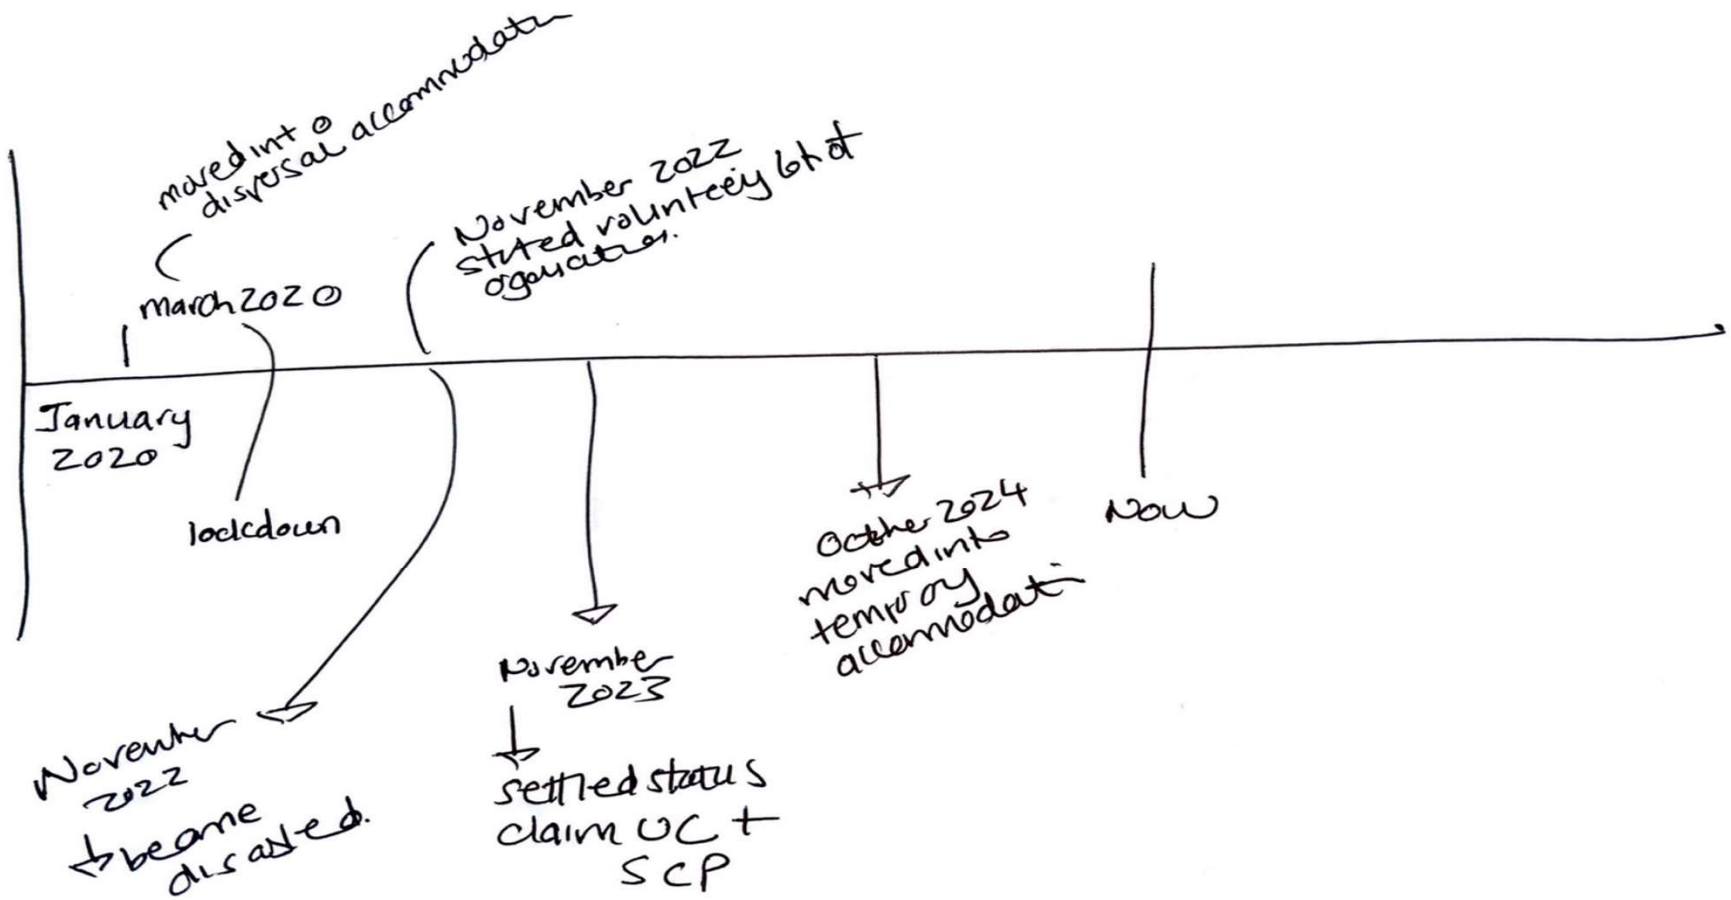 moved into
dispersal accommodation
March 2020
November 2022
started volunteering lot of
organisation.
January
2020
lockdown
November
2022
became
disabled.
November
2023
settled status
claim UC +
SCP
October 2024
moved into
temporary
accommodation
Now